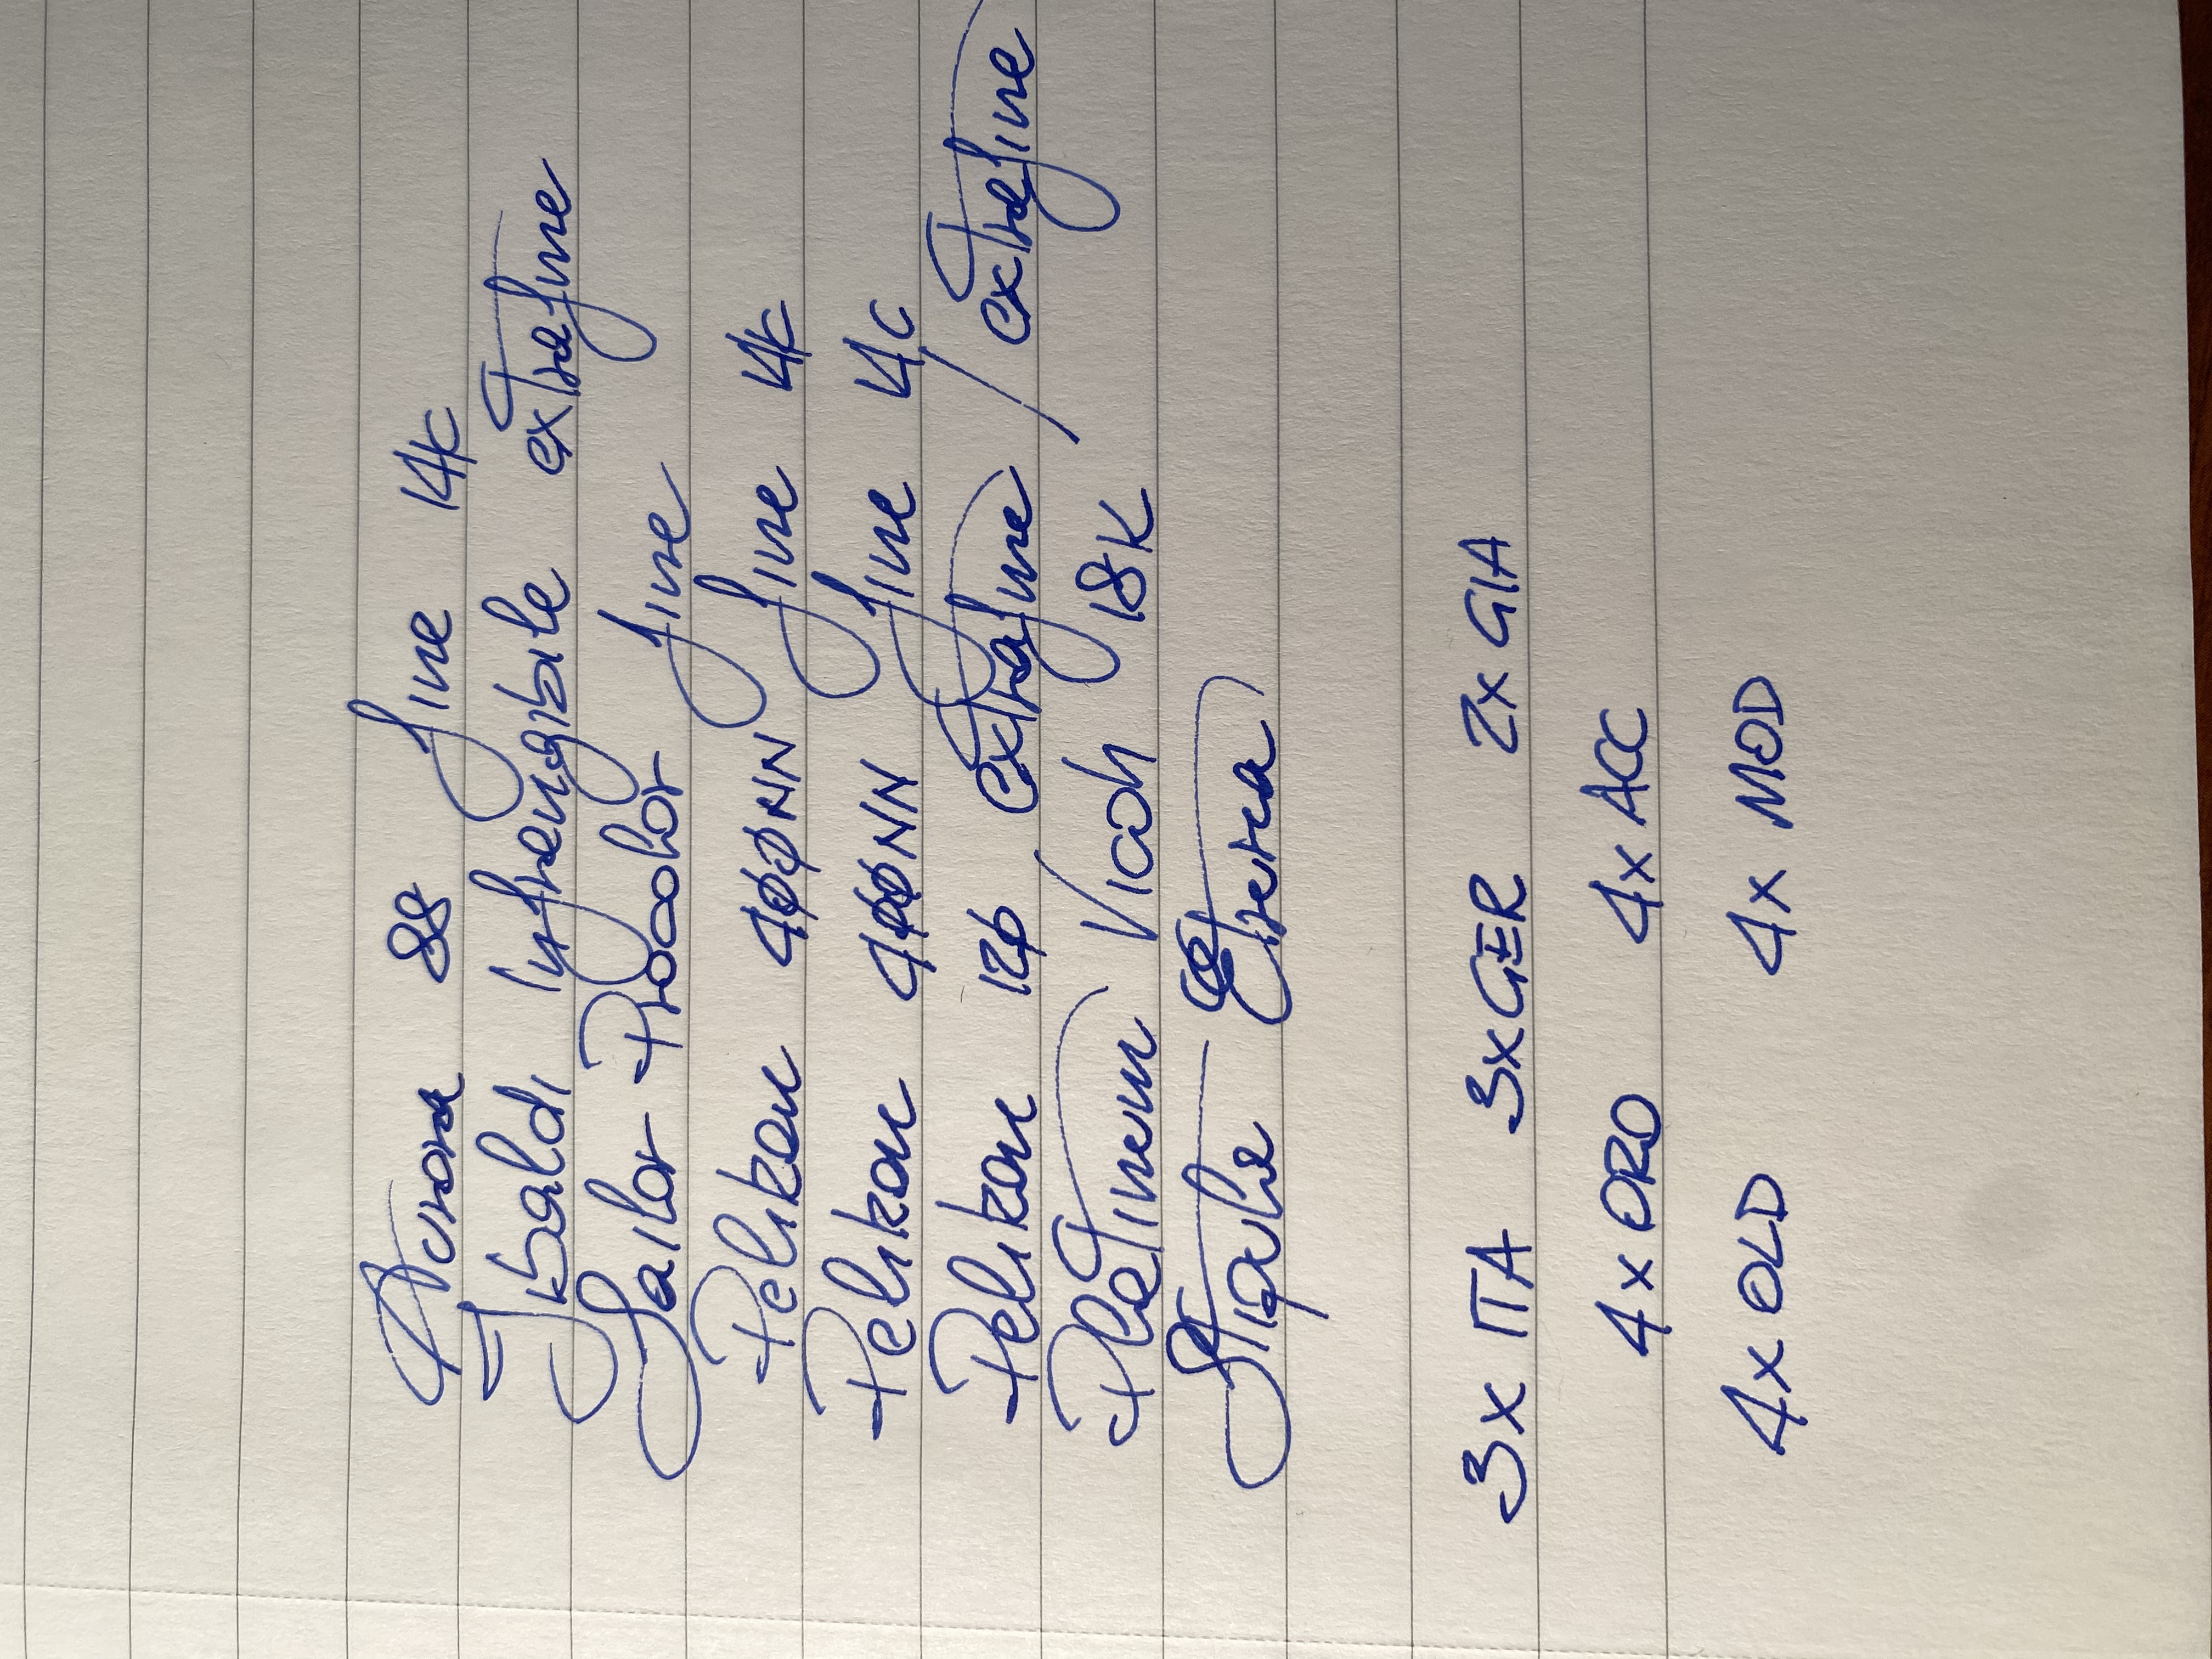 Aurora 88 fine 14K
Tibaldi Infrangibile extrafine
Sailor Procolor fine
Pelikan 400NN fine 14K
Pelikan 400NN fine 14C
Pelikan 120 extrafine / extrafine
Platinum 18K
Stipula Etruria
3x ITA 3xGER 2xGIA
4x ORO 4x ACC
4x OLD 4x MOD